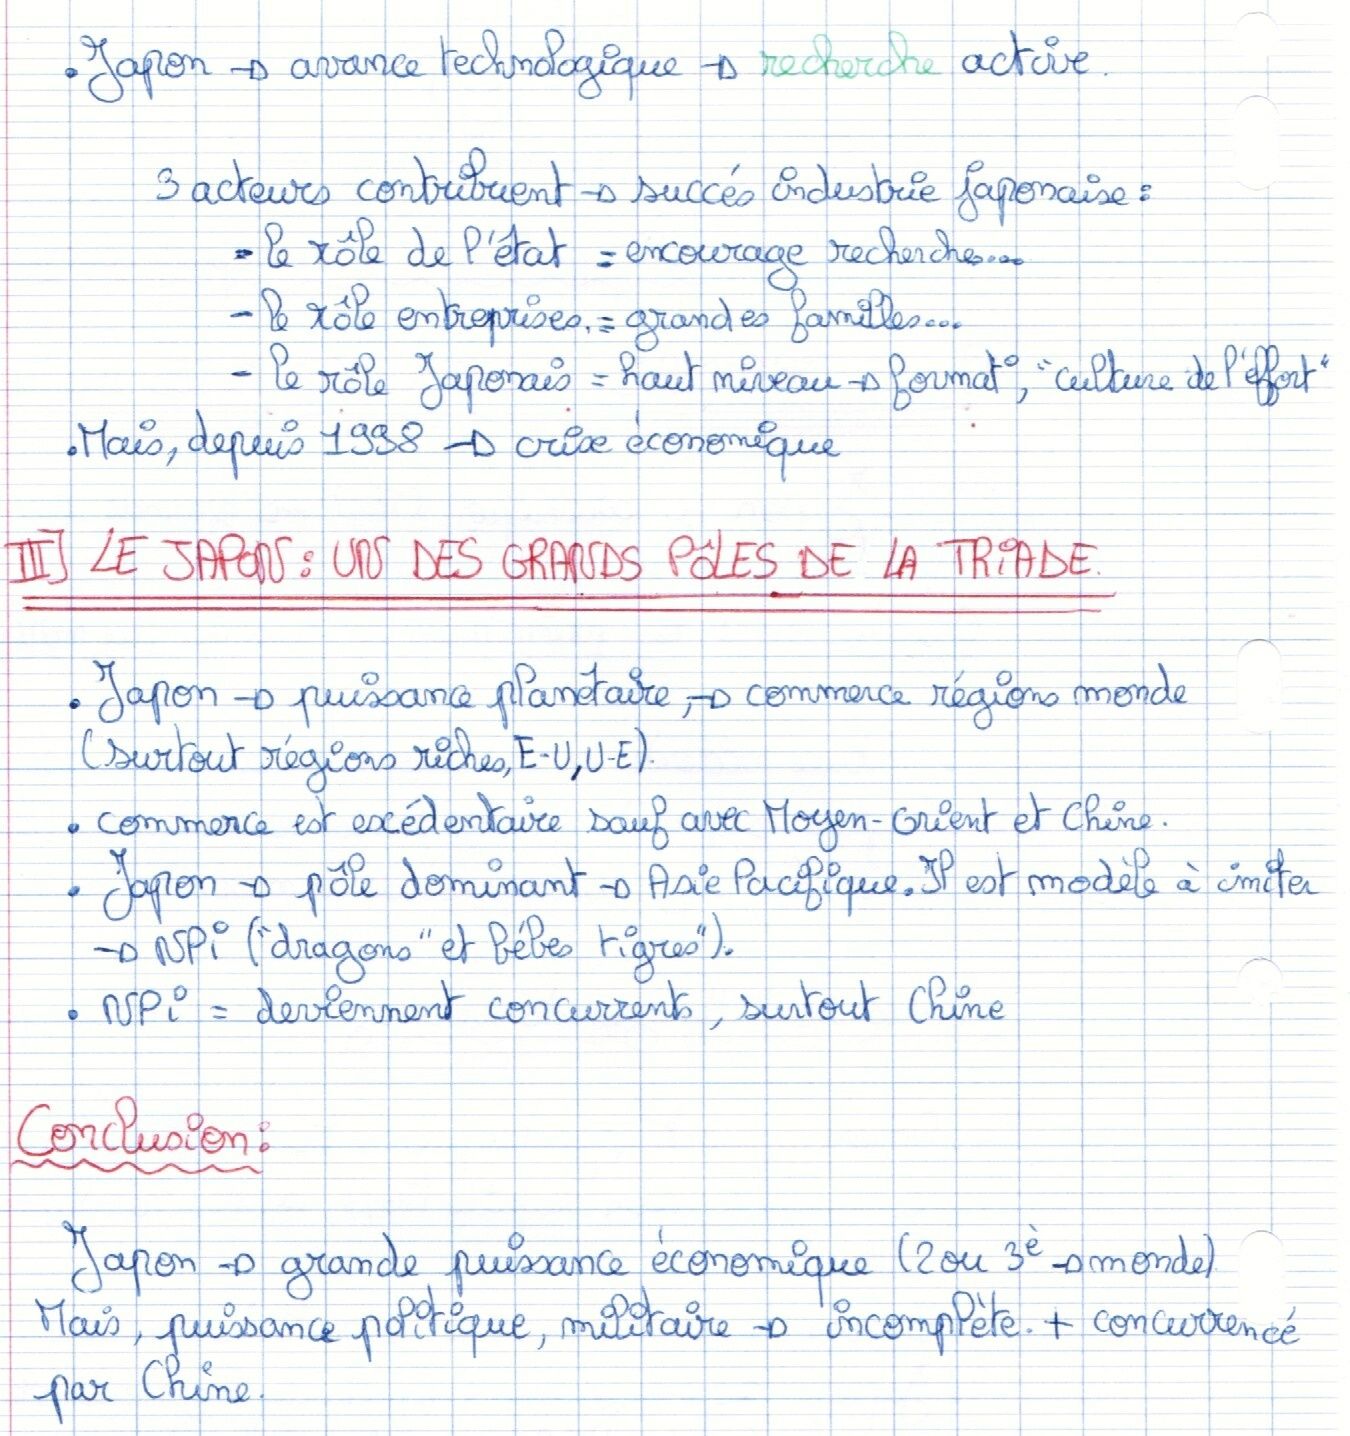 . Japon → avance technologique → recherche active.
3 acteurs contribuent → succés industrie japonaise :
- le rôle de l'état = encourage recherche...
- le rôle entreprises. = grandes familles...
- le rôle Japonais = haut niveau → format°, "culture de l'effort"
. Mais, depuis 1998 → crise économique
III] LE JAPON : UN DES GRANDS PÔLES DE LA TRIADE.
. Japon → puissance planétaire, → commerce régions monde
(surtout régions riches, E-U, U-E).
. commerce est excédentaire sauf avec Moyen-Orient et Chine.
. Japon → pôle dominant → Asie Pacifique. Il est modèle à imiter
→ NPi ("dragons" et bébes tigres").
. NPi = deviennent concurrents, surtout Chine
Conclusion :
Japon → grande puissance économique (2 ou 3è → monde)
Mais, puissance politique, militaire → incomplète. + concurrencé
par Chine.